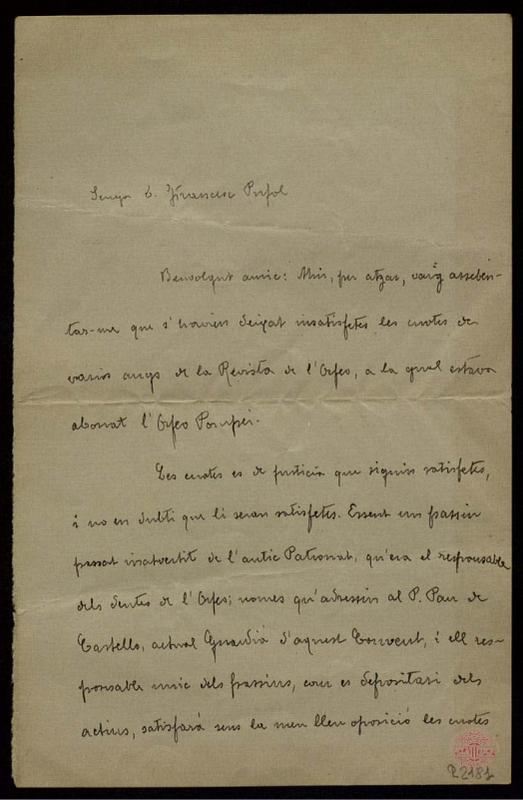 Senyor D. Francesc Pujol
Benvolgut amic: Ahir, per atzar, vaig asseben-
tar-me que s'havien deixat insatisfetes les cuotes de
varios anys de la Revista de l'Orfeo, a la qual estava
abonat l'Orfeo Pompei.
Les cuotes es de justicia que siguin satisfetes,
i no en dubti que li seran satisfetes. Essent un passiu
passat inadvertit de l'antic Patronat, qu'era el responsable
dels deutes de l'Orfeo; nomes qu'adressin al P. Pau de
Castello, actual Guardiá d'aquest Convent, i ell res-
ponsable unic dels passius, com es depositari dels
actius, satisfará sens la meu lleu oposició les cuotes
R.2181